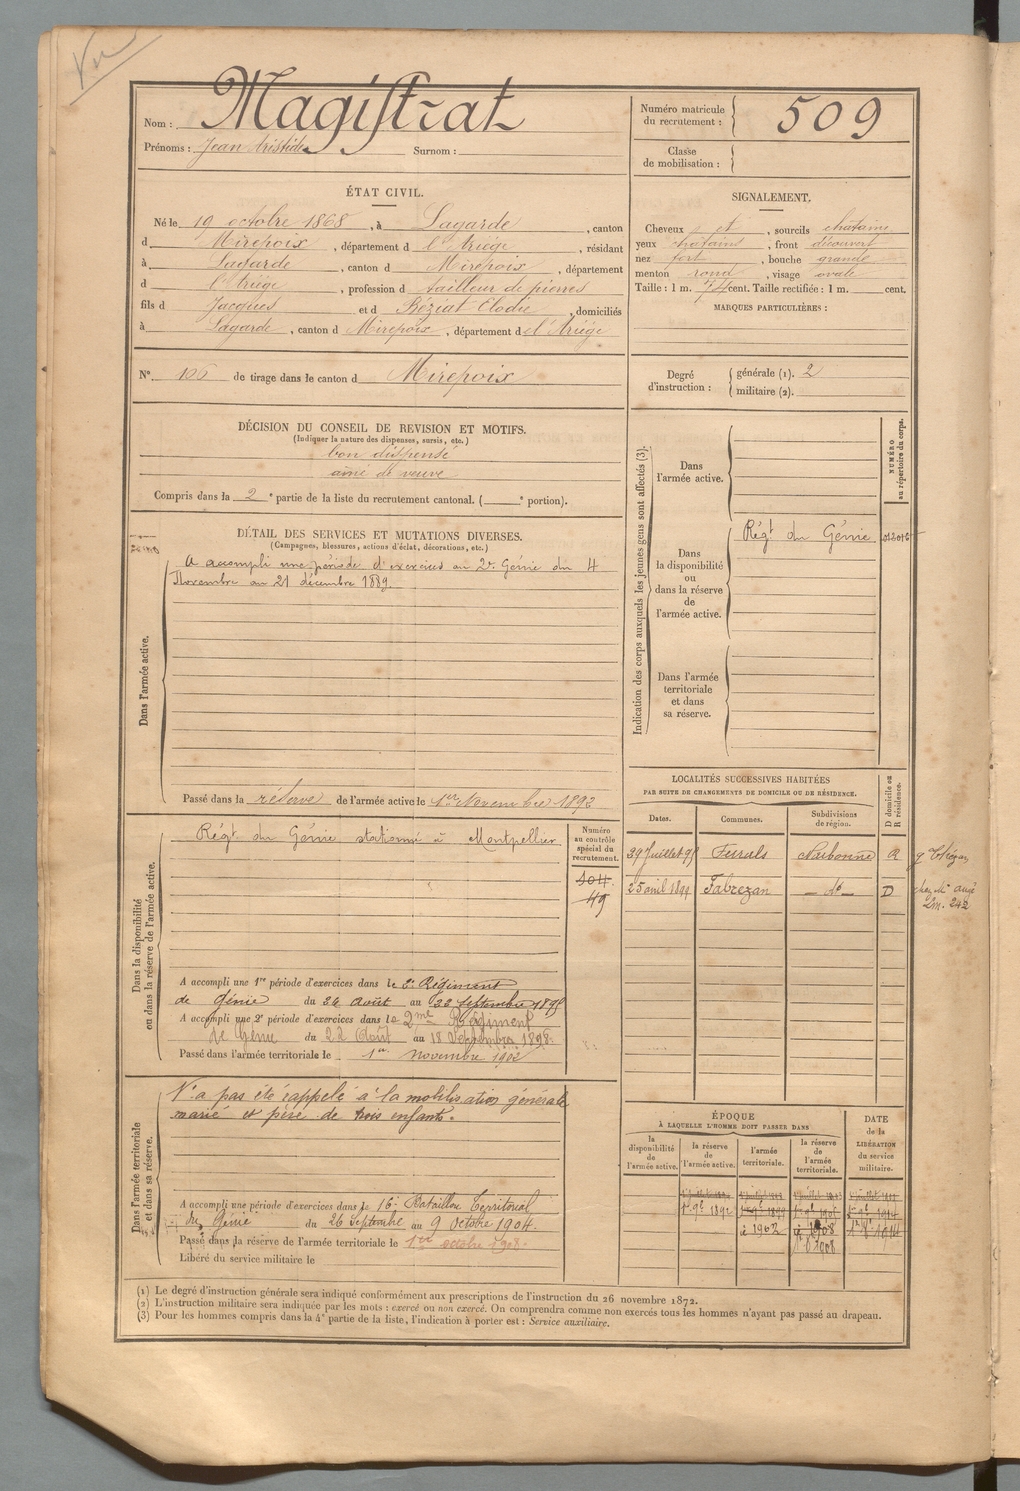 Vu
Nom : Magistrat
Prénoms : Jean Aristide Surnom :
Numéro matricule du recrutement : 509
Classe de mobilisation :
ÉTAT CIVIL.
Né le 19 octobre 1868, à Lagarde, canton
d Mirepoix, département d l'Ariège, résidant
à Lagarde, canton d Mirepoix, département
d l'Ariège, profession d tailleur de pierres
fils d Jacques et d Béziat Elodie, domiciliés
à Lagarde, canton d Mirepoix, département d el'Ariège
N° 106 de tirage dans le canton d Mirepoix
SIGNALEMENT.
Cheveux et, sourcils chatains
yeux chatains, front découvert
nez fort, bouche grande
menton rond, visage ovale
Taille : 1 m. 74 cent. Taille rectifiée : 1 m. cent.
MARQUES PARTICULIÈRES :
Degré d'instruction : générale (1). 2
militaire (2).
DÉCISION DU CONSEIL DE REVISION ET MOTIFS.
(Indiquer la nature des dispenses, sursis, etc.)
bon dispensé
ainé de veuve
Compris dans la 2e partie de la liste du recrutement cantonal. ( e portion).
DÉTAIL DES SERVICES ET MUTATIONS DIVERSES.
(Campagnes, blessures, actions d'éclat, décorations, etc.)
Dans l'armée active.
A accompli une période d'exercices au 2e Génie du 4
Novembre au 21 décembre 1889.
Passé dans la réserve de l'armée active le 1er Novembre 1892
Indication des corps auxquels les jeunes gens sont affectés (3).
NUMÉRO au répertoire du corps.
Dans l'armée active.
Dans la disponibilité ou dans la réserve de l'armée active.
Régt du Génie
Dans l'armée territoriale et dans sa réserve.
Dans la disponibilité ou dans la réserve de l'armée active.
Régt du Génie stationné à Montpellier
Numéro au contrôle spécial du recrutement.
104.
49
A accompli une 1re période d'exercices dans le 2e Régiment
de Génie du 24 Août au 22 Septembre 1895
A accompli une 2e période d'exercices dans le 2me Régiment
de Génie du 22 Août au 18 Septembre 1898.
Passé dans l'armée territoriale le 1er novembre 1902
LOCALITÉS SUCCESSIVES HABITÉES
PAR SUITE DE CHANGEMENTS DE DOMICILE OU DE RÉSIDENCE.
D domicile ou R résidence.
Dates. Communes. Subdivisions de région.
29 Juillet 95 Ferrals Narbonne R
25 avril 1899 Fabrezan - do - D
Dans l'armée territoriale et dans sa réserve.
N'a pas été rappelé à la mobilisation générale
marié et père de trois enfants.
A accompli une période d'exercices dans le 16e Bataillon Territorial
du Génie du 26 septembre au 9 octobre 1904.
Passé dans la réserve de l'armée territoriale le 1er octobre 1908.
Libéré du service militaire le
ÉPOQUE
À LAQUELLE L'HOMME DOIT PASSER DANS
DATE de la LIBÉRATION du service militaire.
la disponibilité de l'armée active.
la réserve de l'armée active.
l'armée territoriale.
la réserve de l'armée territoriale.
(1) Le degré d'instruction générale sera indiqué conformément aux prescriptions de l'instruction du 26 novembre 1872.
(2) L'instruction militaire sera indiquée par les mots : exercé ou non exercé. On comprendra comme non exercés tous les hommes n'ayant pas passé au drapeau.
(3) Pour les hommes compris dans la 4e partie de la liste, l'indication à porter est : Service auxiliaire.